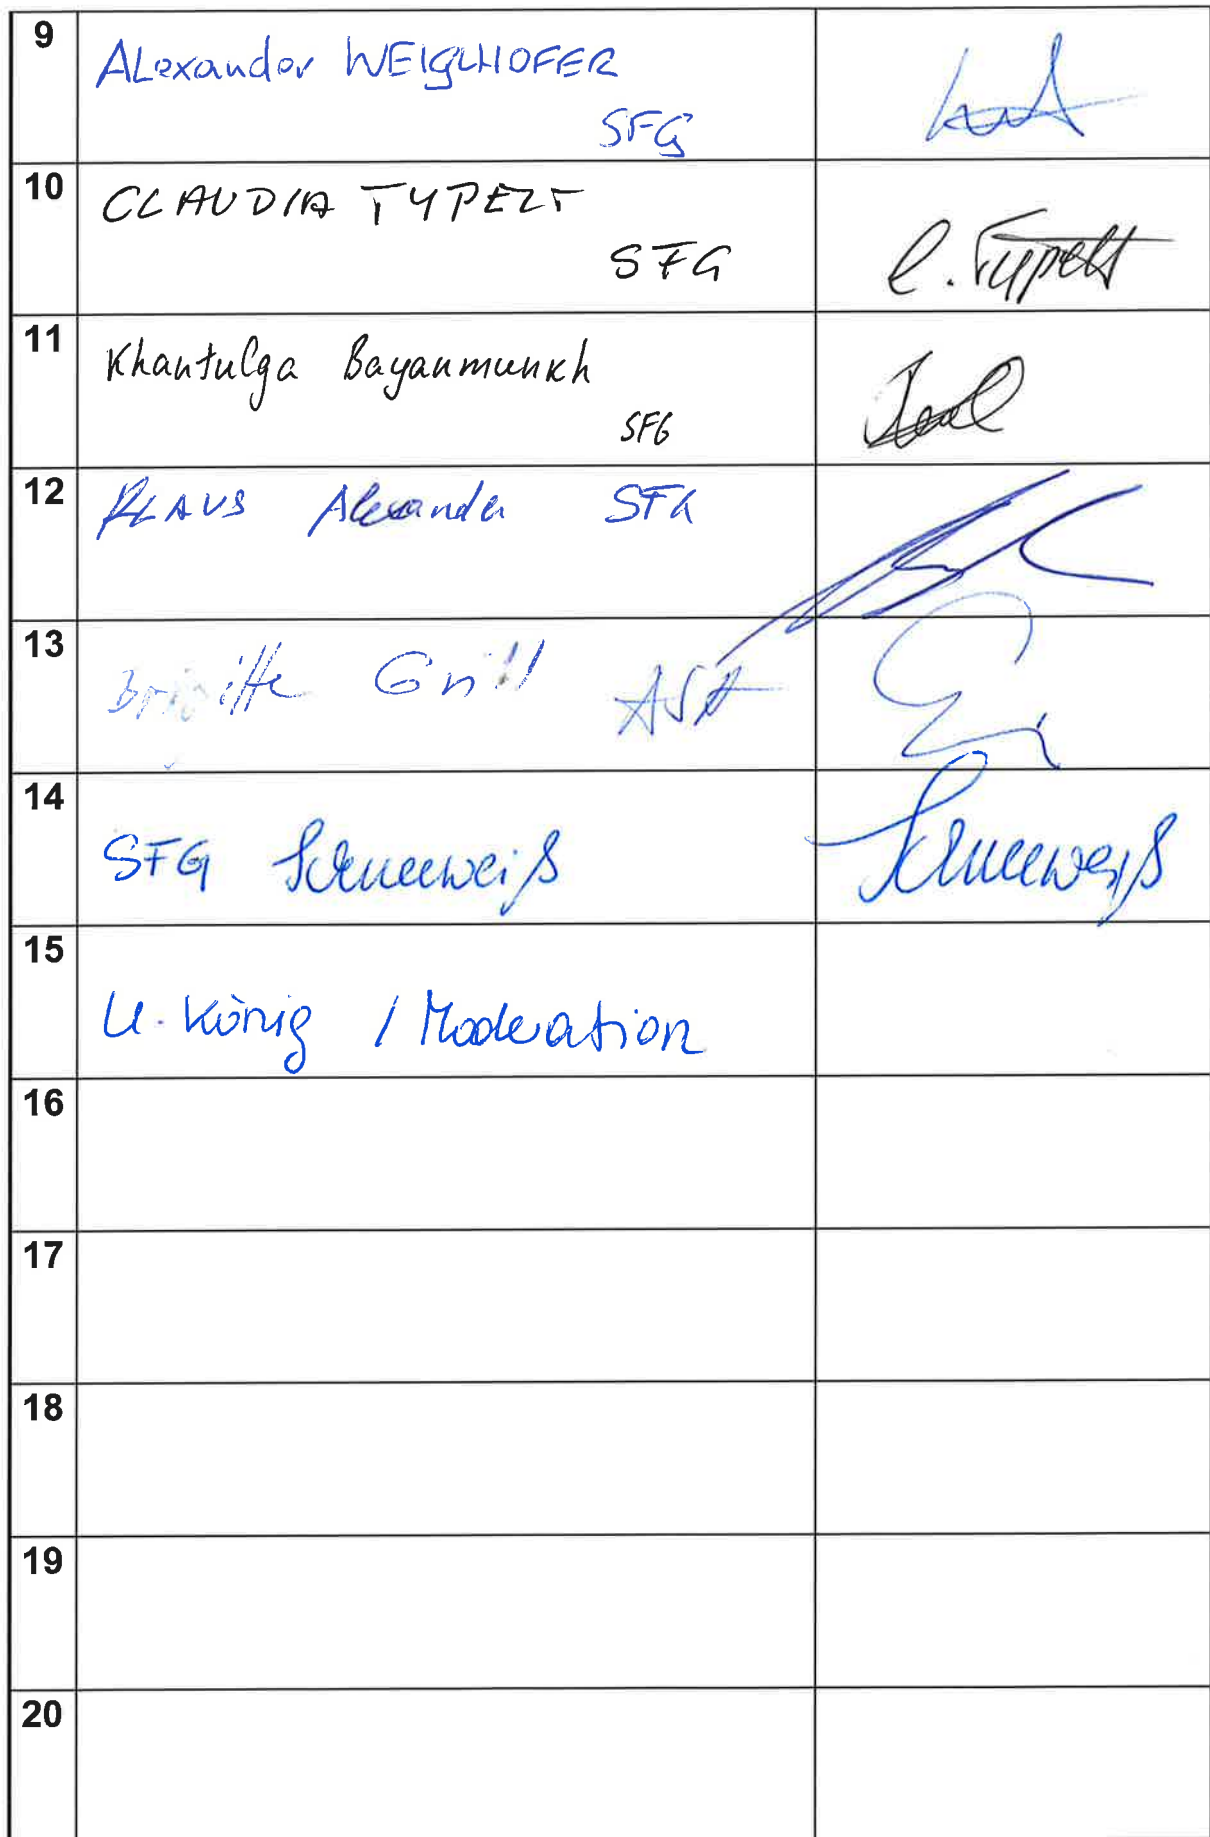 9
Alexander WEIGLHOFER
SFG
10
CLAUDIA TYPELT
SFG
C. Typelt
11
Khantulga Bayanmunkh
SFG
12
KLAUS Alexander SFG
13
Brigitte Grill
14
SFG Schneeweiß Schneeweiß
15
U. König / Moderation
16
17
18
19
20